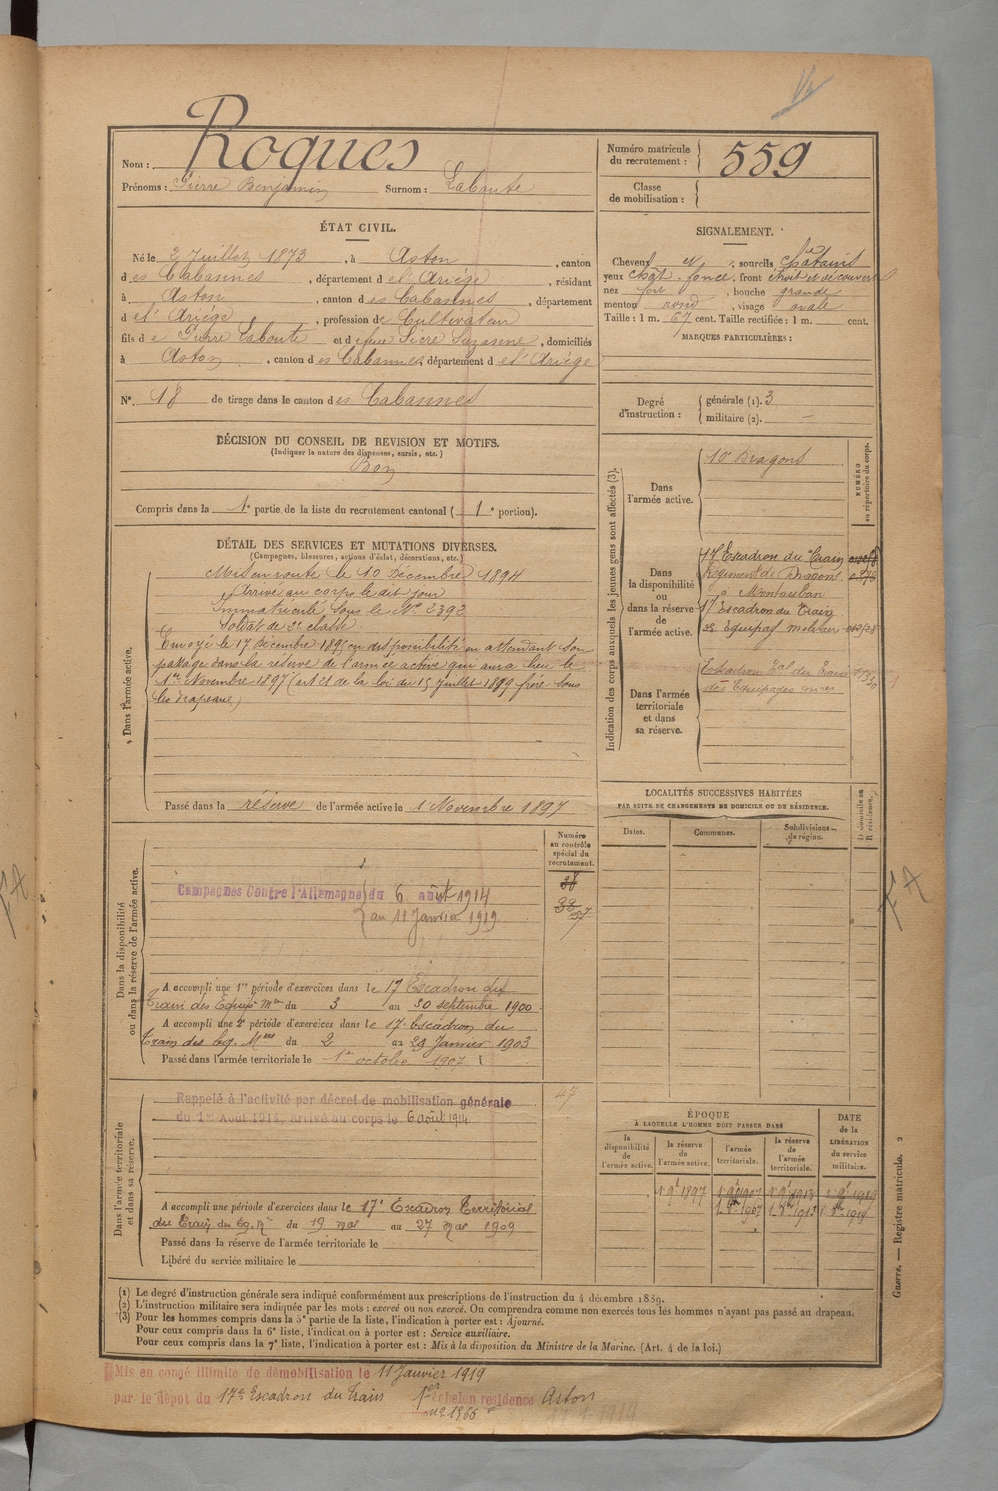 Nom : Roques
Prénoms : Pierre Benjamin Surnom : Laboute
Numéro matricule du recrutement : 559
Classe de mobilisation :
ÉTAT CIVIL.
Né le 2 Juillet 1873, à Aston, canton
d es Cabannes, département d e l'Ariège, résidant
à Aston, canton d es Cabannes, département
d e l'Ariège, profession de Cultivateur
fils d e Pierre Laboute et d e feue Sicre Suzanne, domiciliés
à Aston, canton d es Cabannes, département d e l'Ariège
N°. 18 de tirage dans le canton d es Cabannes
SIGNALEMENT.
Cheveux et, sourcils châtains
yeux chât. foncé, front étroit et découvert
nez fort, bouche grande
menton rond, visage ovale
Taille : 1 m. 67 cent. Taille rectifiée : 1 m. cent.
MARQUES PARTICULIÈRES :
Degré d'instruction : générale (1). 3
militaire (2). —
DÉCISION DU CONSEIL DE REVISION ET MOTIFS.
(Indiquer la nature des dispenses, sursis, etc.)
Bon
Compris dans la 1e partie de la liste du recrutement cantonal ( 1e portion).
DÉTAIL DES SERVICES ET MUTATIONS DIVERSES.
(Campagnes, blessures, actions d'éclat, décorations, etc.)
Dans l'armée active.
Mis en route le 10 Décembre 1894
Arrivé au corps le dit jour
Immatriculé sous le N° 2392
Soldat de 2e classe.
Envoyé le 17 Décembre 1895 en disponibilité en attendant son
passage dans la réserve de l'armée active qui aura lieu le
1er Novembre 1897 (art 21 de la loi du 15 Juillet 1889 frère sous
les drapeaux)
Passé dans la réserve de l'armée active le 1 Novembre 1897
Indication des corps auxquels les jeunes gens sont affectés (3).
NUMÉRO au répertoire du corps.
Dans l'armée active.
10e Dragons
Dans la disponibilité ou dans la réserve de l'armée active.
17 Escadron du Train
Régiment de Dragons
à Montauban
17 Escadron du Train
des Equipag militaires
Dans l'armée territoriale et dans sa réserve.
Escadron Eal du Train
des Equipages mires
LOCALITÉS SUCCESSIVES HABITÉES
PAR SUITE DE CHANGEMENTS DE DOMICILE OU DE RÉSIDENCE.
Dates. Communes. Subdivisions de région. D domicile ou R résidence.
Dans la disponibilité ou dans la réserve de l'armée active.
Numéro au contrôle spécial du recrutement.
Campagnes Contre l'Allemagne du 6 août 1914
au 11 Janvier 1919
37
A accompli une 1re période d'exercices dans le 17 Escadron du
Train des Equip. Mres du 3 au 30 septembre 1900
A accompli une 2e période d'exercices dans le 17e Escadron du
Train des Eq. Mres du 2 au 29 Janvier 1903
Passé dans l'armée territoriale le 1er octobre 1907
Dans l'armée territoriale et dans sa réserve.
Rappelé à l'activité par décret de mobilisation générale
du 1er Août 1914, arrivé au corps le 6 août 1914
47
A accompli une période d'exercices dans le 17e Escadron Territorial
du Train des Eq. Mres du 19 mai au 27 mai 1909
Passé dans la réserve de l'armée territoriale le
Libéré du service militaire le
ÉPOQUE
À LAQUELLE L'HOMME DOIT PASSER DANS
DATE de la LIBÉRATION du service militaire.
la disponibilité de l'armée active. la réserve de l'armée active. l'armée territoriale. la réserve de l'armée territoriale.
1 9e 1897 1 9e 1907 1 9e 1913 1 9e 1919
Guerre. — Registre matricule. 2
(1) Le degré d'instruction générale sera indiqué conformément aux prescriptions de l'instruction du 4 décembre 1889.
(2) L'instruction militaire sera indiquée par les mots : exercé ou non exercé. On comprendra comme non exercés tous les hommes n'ayant pas passé au drapeau.
(3) Pour les hommes compris dans la 5e partie de la liste, l'indication à porter est : Ajourné.
Pour ceux compris dans la 6e liste, l'indication à porter est : Service auxiliaire.
Pour ceux compris dans la 7e liste, l'indication à porter est : Mis à la disposition du Ministre de la Marine. (Art. 4 de la loi.)
Mis en congé illimité de démobilisation le 11 Janvier 1919
par le dépôt du 17e Escadron du Train 1er échelon résidence Aston